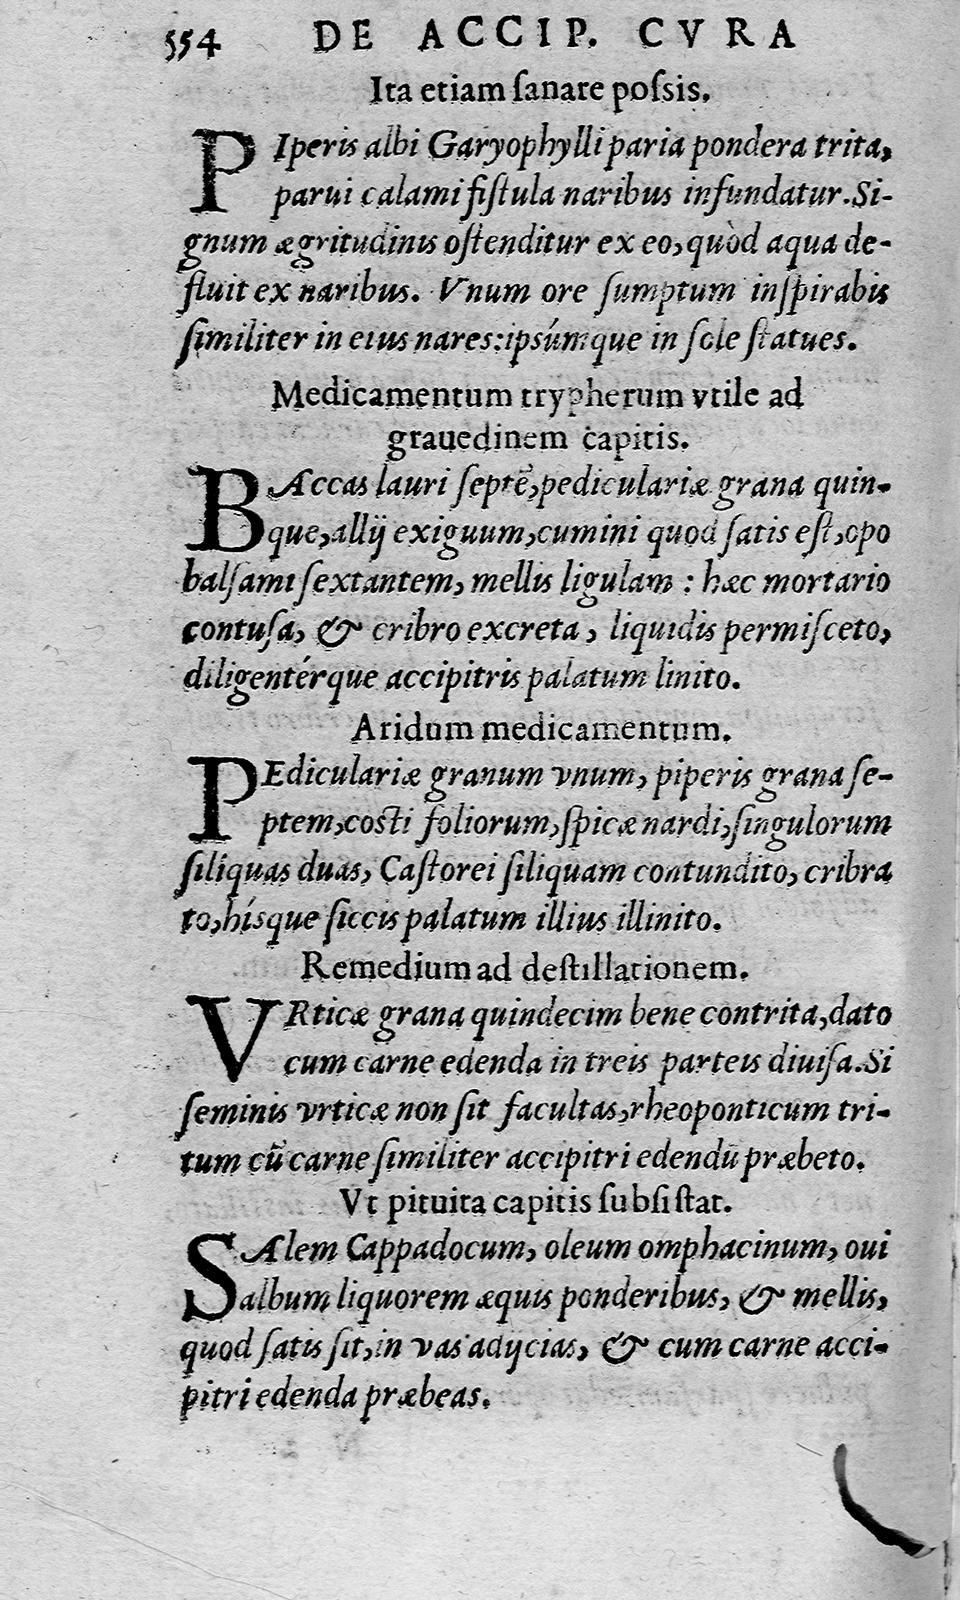 554 DE ACCIP. CVRA
Ita etiam ſanare poſsis.
PIperis albi Garyophylli paria pondera trita,
parui calami fiſtula naribus infundatur. Si-
gnum ægritudinis oſtenditur ex eo, quòd aqua de-
fluit ex naribus. Vnum ore ſumptum inſpirabis
ſimiliter in eius nares: ipsúmque in ſole ſtatues.
Medicamentum trypherum vtile ad
grauedinem capitis.
BAccas lauri ſeptē, pediculariæ grana quin-
que, allij exiguum, cumini quod ſatis eſt, opo
balſami ſextantem, mellis ligulam : hæc mortario
contuſa, & cribro excreta, liquidis permiſceto,
diligentérque accipitris palatum linito.
Aridum medicamentum.
PEdiculariæ granum vnum, piperis grana ſe-
ptem, coſti foliorum, ſpicæ nardi, ſingulorum
ſiliquas duas, Caſtorei ſiliquam contundito, cribra
to, hísque ſiccis palatum illius illinito.
Remedium ad deſtillationem.
VRticæ grana quindecim bene contrita, dato
cum carne edenda in treis parteis diuiſa. Si
ſeminis vrticæ non ſit facultas, rheoponticum tri-
tum cū carne ſimiliter accipitri edendū præbeto.
Vt pituita capitis ſubſiſtat.
SAlem Cappadocum, oleum omphacinum, oui
album liquorem æquis ponderibus, & mellis,
quod ſatis ſit, in vas adijcias, & cum carne acci-
pitri edenda præbeas.